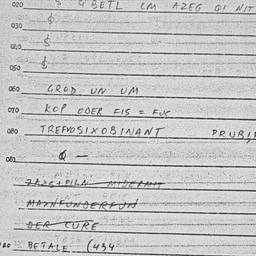 020 $ G BETL CM AZEG QI NIT
030 $
040 $
050 $
060 GROD UN UM
070 KOP ODER FIS = FUS
080 TREFNOSIXOBINANT PRUBI
081 —
MIDERMIT
MAXNFUNDERFUN
DER CURE
BETALE (434